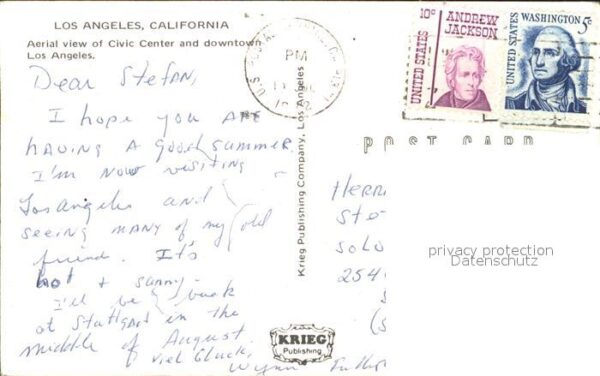 LOS ANGELES, CALIFORNIA
Aerial view of Civic Center and downtown
Los Angeles.
Dear Stefan,
I hope you are
having a good summer.
I'm now visiting
Los Angeles and
seeing many of my old
friend. It's
hot + sunny.
I'll be back
at Stuttgart in the
middle of August.
viel Glück,
Wynn
Krieg Publishing Company, Los Angeles
KRIEG
Publishing
PM
10c
UNITED STATES
ANDREW
JACKSON
UNITED STATES
WASHINGTON
5c
POST CARD
HERR
Ste
Solo
254
(S
privacy protection
Datenschutz